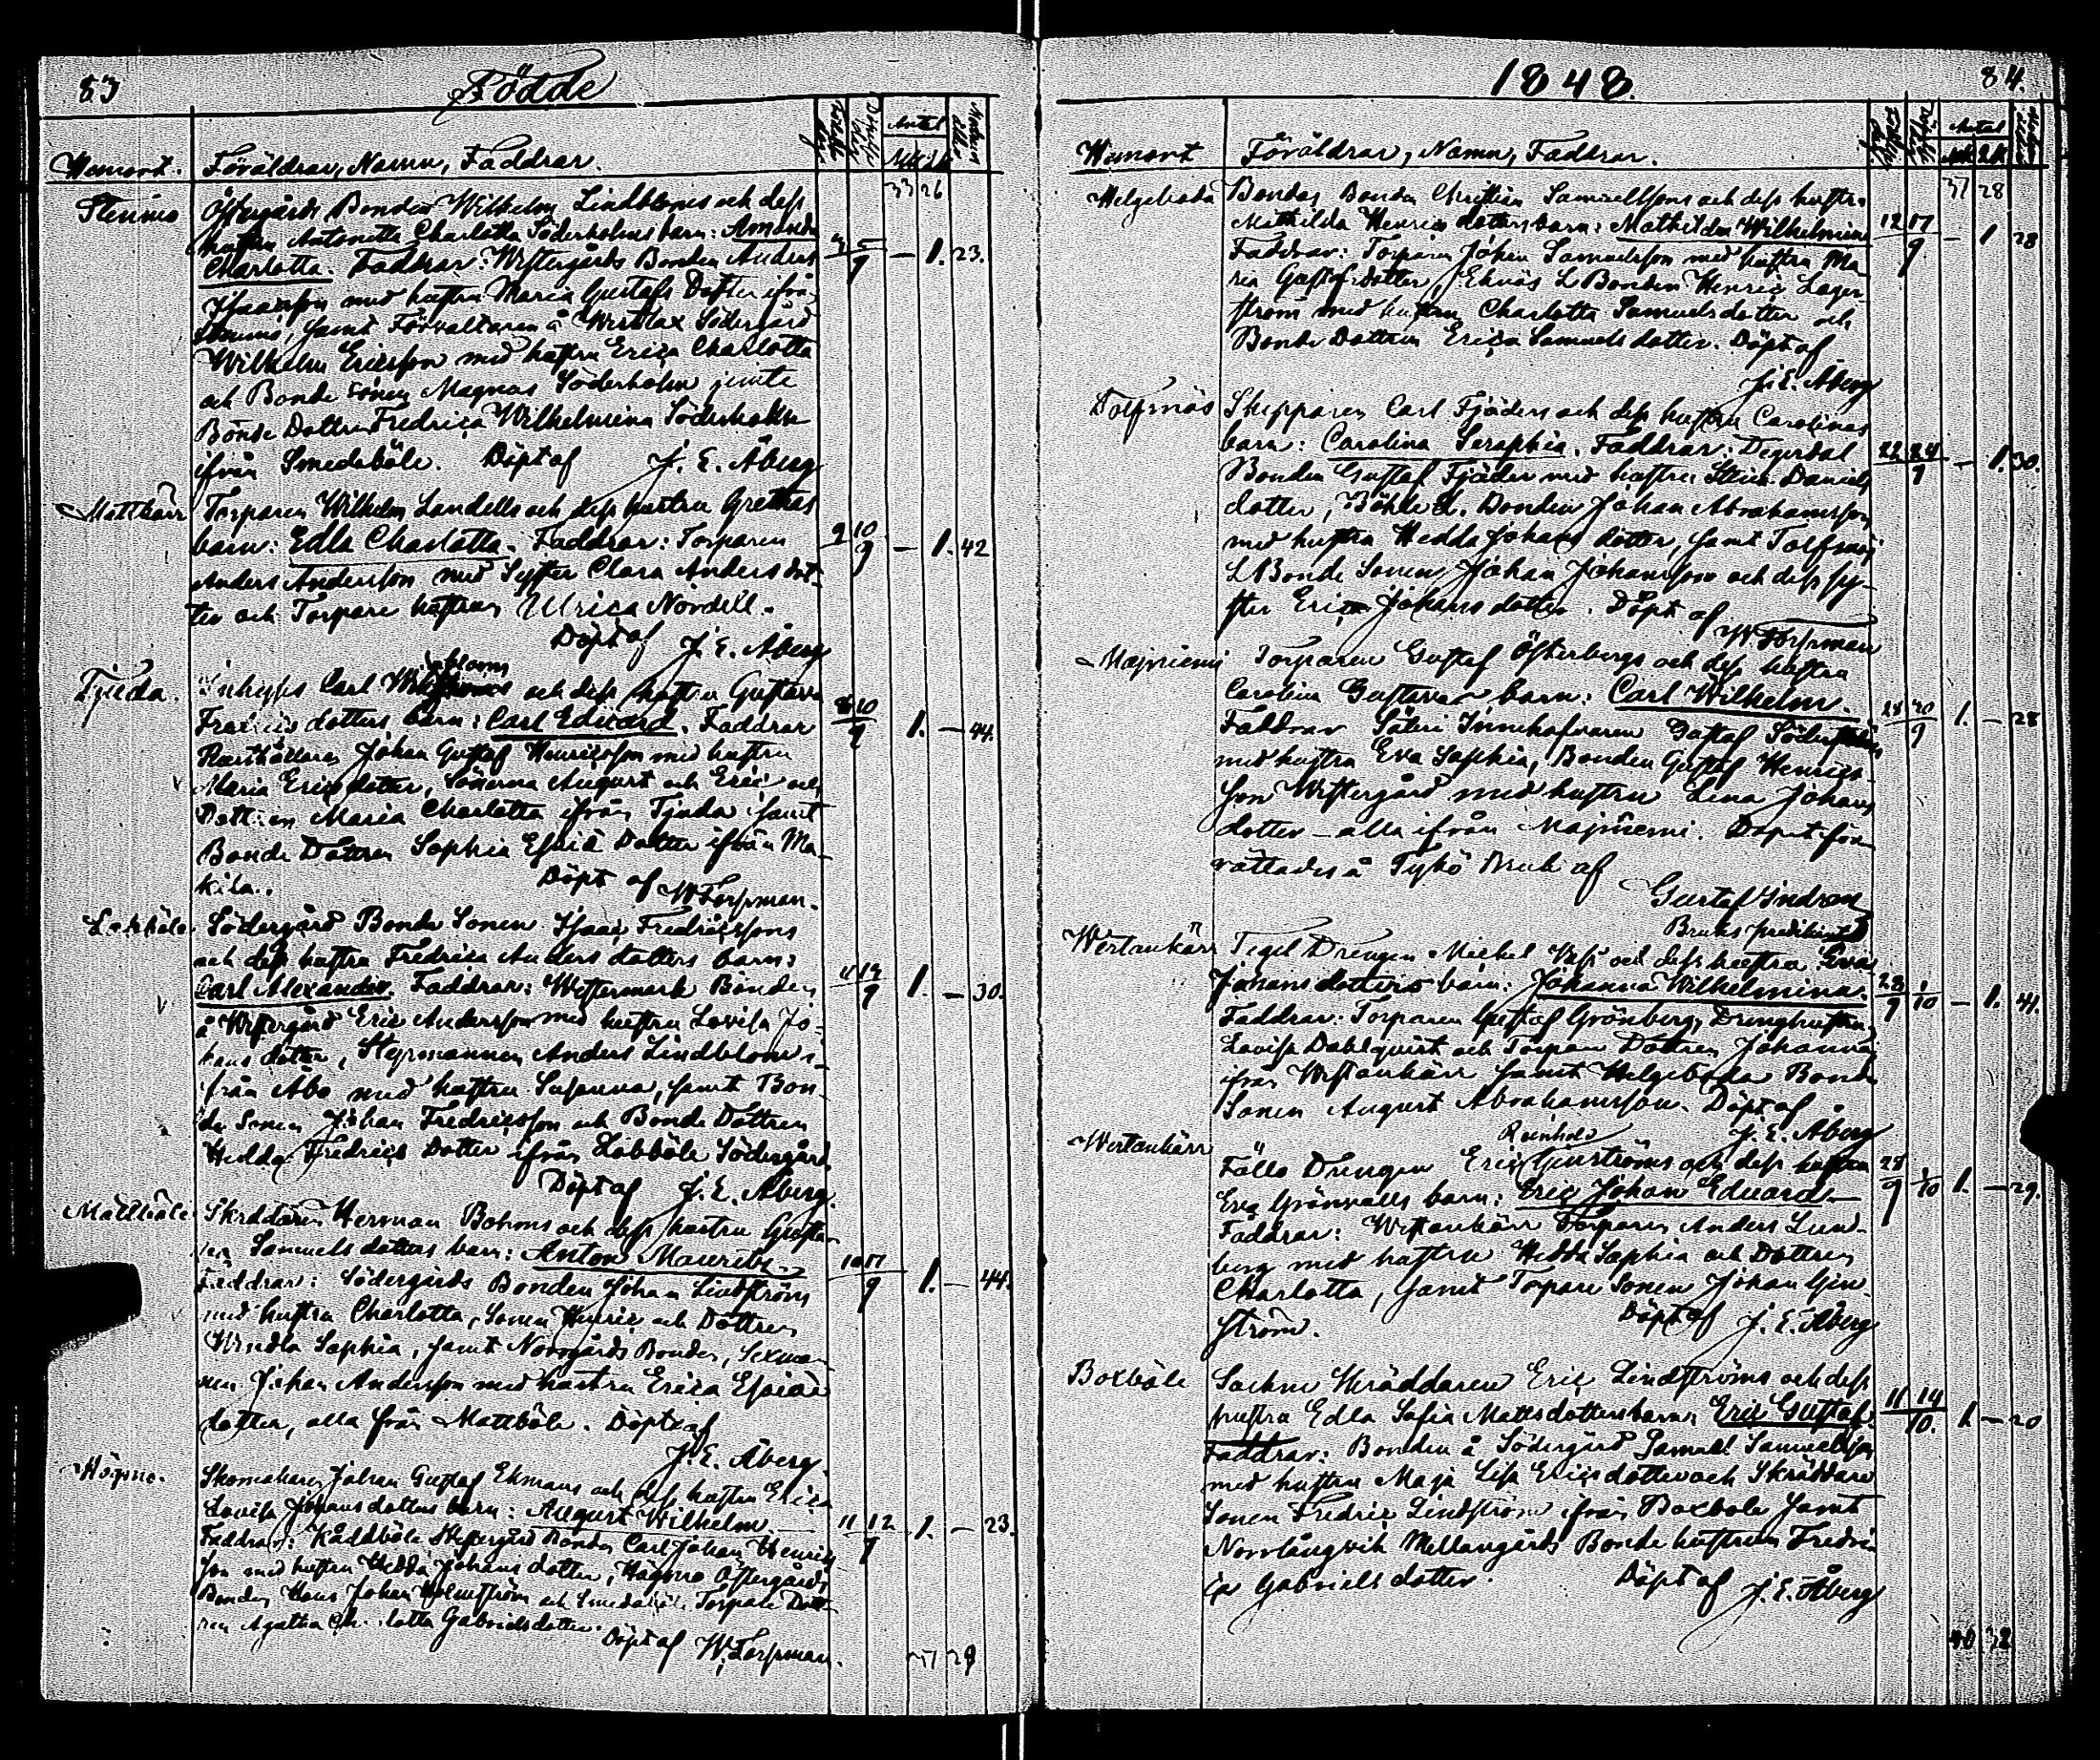 83 Födde
Hemort. Föräldrar, Namn, Faddrar. Antal
33 26
Stenmo Östergårds Bonden Wilhelm Lindbloms och dess
hustru Antonetta Charlotta Söderholms barn: Amanda
Charlotta. Faddrar: Westergårds Bonden Anders 5/9 — 1. 23.
Isaacsson med hustru Maria Gustafs Dotter ifrån
Stenmo, samt Förvaltaren å Westlax Södergård
Wilhelm Ericsson med hustru Erica Charlotta
och Bonde Sonen Magnus Söderholm jemte
Bonde Dottren Fredrica Wilhelmina Söderholm
ifrån Smedsböle. Döpt af J. E. Åberg
Mattkärr Torparen Wilhelm Landells och dess hustru Grethas
barn: Edla Charlotta. Faddrar: Torparen 9 10/9 — 1. 42
Anders Andersson med Syster Clara Anders dot-
ter och Torpare hustrun Ulrica Nordell.
Döpt af J. E. Åberg
Tjuda. Inhyses Carl och dess hustru Gustava
Fredrics dotters barn: Carl Eduard. Faddrar 10/9 1. — 44.
Rusthållaren Johan Gustaf Henricsson med hustru
Maria Erics dotter, Sönerna August och Eric och
Dottren Maria Charlotta ifrån Tjuda samt
Bonde Dottren Sophia Esaiæ Dotter ifrån Ma-
kila. Döpt af W Forssman.
Lobböle Södergård Bonde Sonen Isaac Fredricssons
och dess hustru Fredrica Anders dotters barn:
Carl Alexander. Faddrar: Westermark Bonden 11 12/9 1. — 30.
å Westergård Eric Andersson med hustru Lovisa Jo-
hans dotter, Styrmannen Anders Lindblom i-
från Åbo med hustru Susanna, samt Bon-
de Sonen Johan Fredricsson och Bonde Dottren
Hedda Fredrics Dotter ifrån Lobböle Södergård
Döpt af J. E. Åberg.
Mattböle Skräddaren Herman Bohms och dess hustru Gusta-
va Samuels dotters barn: Anton Mauritz.
Faddrar: Södergårds Bonden Johan Lindström 10 17/9 1. — 44.
med hustru Charlotta, Sonen Henric och Dottren
Wendla Sophia, samt Norrgårds Bonden, Sexman-
nen Johan Andersson med hustru Erica Esaiæ
dotter, alla från Mattböle. Döpt af
J. E. Åberg.
Högmo. Skomakaren Johan Gustaf Ekmans och dess hustru Erica
Lovisa Johans dotters barn: August Wilhelm. 11 12/9 1. — 23.
Faddrar: Kåddböle Westergård Bonden Carl Johan Henrics
son med hustru Hedda Johans dotter, Högmo Östergårds
Bonden Hans Johan Holmström och Smedsböle Torpare Dott-
ren Agatha Ch..lotta Gabrielsdotter. Döpt af W. Forssman.
37 28
1848. 84.
Hemort Föräldrar, Namn, Faddrar. Antal
37 28
Helgeboda Bondas Bonden Christian Samuelssons och dess hustru
Mathilda Henrics dotters barn: Mathilda Wilhelmina 12 17/9 — 1 28
Faddrar: Torparen Johan Samuelsson med hustru Ma-
ria Gustafsdotter, Eknäs L Bonden Henric Lager-
ström med hustru Charlotta Samuelsdotter och
Bonde Dottren Erica Samuels dotter. Döpt af
J. E. Åberg
Tolfsnäs Skepparen Carl Fjäders och dess hustru Carolinas
barn: Carolina Seraphia. Faddrar: Degerdal 22 24/9 — 1. 30.
Bonden Gustaf Fjäder med hustru Stina Daniels
dotter, Böhle L. Bonden Johan Abrahamsson
med hustru Hedda Johans dotter, samt Tolfsnäs
L Bonde Sonen Johan Johansson och dess sy-
ster Erica Johans dotter. Döpt af W Forssman
Majniemi Torparen Gustaf Österbergs och dess hustru
Carolina Gustavas barn: Carl Wilhelm. 28 30/9 1. — 28
Faddrar Säteri Innehafvaren Gustaf
med hustru Eva Sophia, Bonden Gustaf Henrics-
son Westergård med hustru Lena Johans
dotter — alla ifrån Majniemi. Dopet för-
rättades å Tykö Bruk af
Gustaf Indren
Bruks predikant
Westankärr Tegel Drengen Michel och dess hustru Evas
Johans dotters barn: Johanna Wilhelmina. 28/9 1/10 — 1. 41.
Faddrar: Torparen Gustaf Grönberg, Drenghustrun
Lovisa Dahlquist och Torpare Dottren Johanna
ifrån Westankärr samt Helgeboda Bonde
Sonen August Abrahamsson. Döpt af
J. E. Åberg
Westankärr Reinhold
Fälls Drengen Eric Genströms och dess hustru 28/9 1/10 1. — 29.
Eva Grönvalls barn: Eric Johan Eduard —
Faddrar: Westankärr Torparen Anders Lund-
berg med hustru Hedda Sophia och Dottren
Charlotta, samt Torpare Sonen Johan Gen-
ström. Döpt af J. E. Åberg
Boxböle Sockne Skräddaren Eric Lindströms och dess
hustru Edla Sofia Mattsdotters barn: Eric Gustaf. 11 14/10. 1. — 20
Faddrar: Bonden å Södergård Samuel Samuelsson
med hustru Maja Lisa Ericsdotter och Skräddare
Sonen Fredric Lindström ifrån Boxböle samt
Norrlångvik Mellangårds Bonde hustrun Fredri-
ca Gabrielsdotter. Döpt af J. E. Åberg
40 32